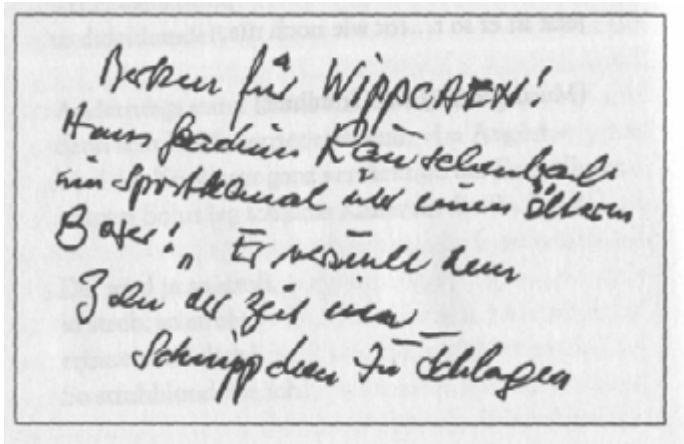 für WIPPCHEN!
Hans Joachim Rauschenbach
im Sportkanal über einen älteren
Boxer: „Er versuchte dem
Zahn der Zeit ein
Schnippchen zu schlagen